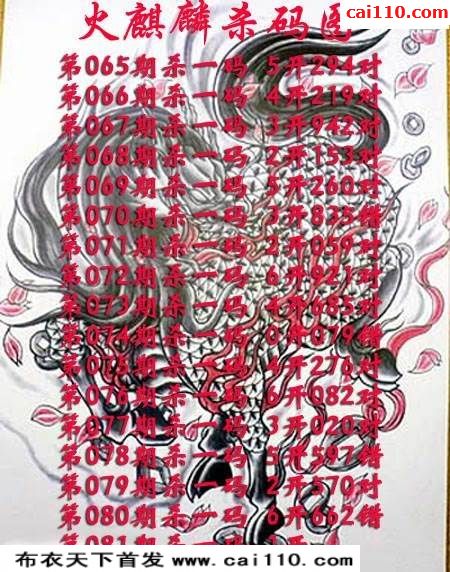 cai110.com
火麒麟杀码
第065期杀一码 5开294对
第066期杀一码 4开219对
第067期杀一码 3开942对
第068期杀一码 2开153对
第069期杀一码 5开260对
第070期杀一码 3开835错
第071期杀一码 2开059对
第072期杀一码 6开921对
第073期杀一码 4开685对
第074期杀一码 0开079错
第075期杀一码 4开276对
第076期杀一码 6开082对
第077期杀一码 3开020对
第078期杀一码 5开597错
第079期杀一码 2开570对
第080期杀一码 6开662错
第081期杀一码
布衣天下首发 www.cai110.com